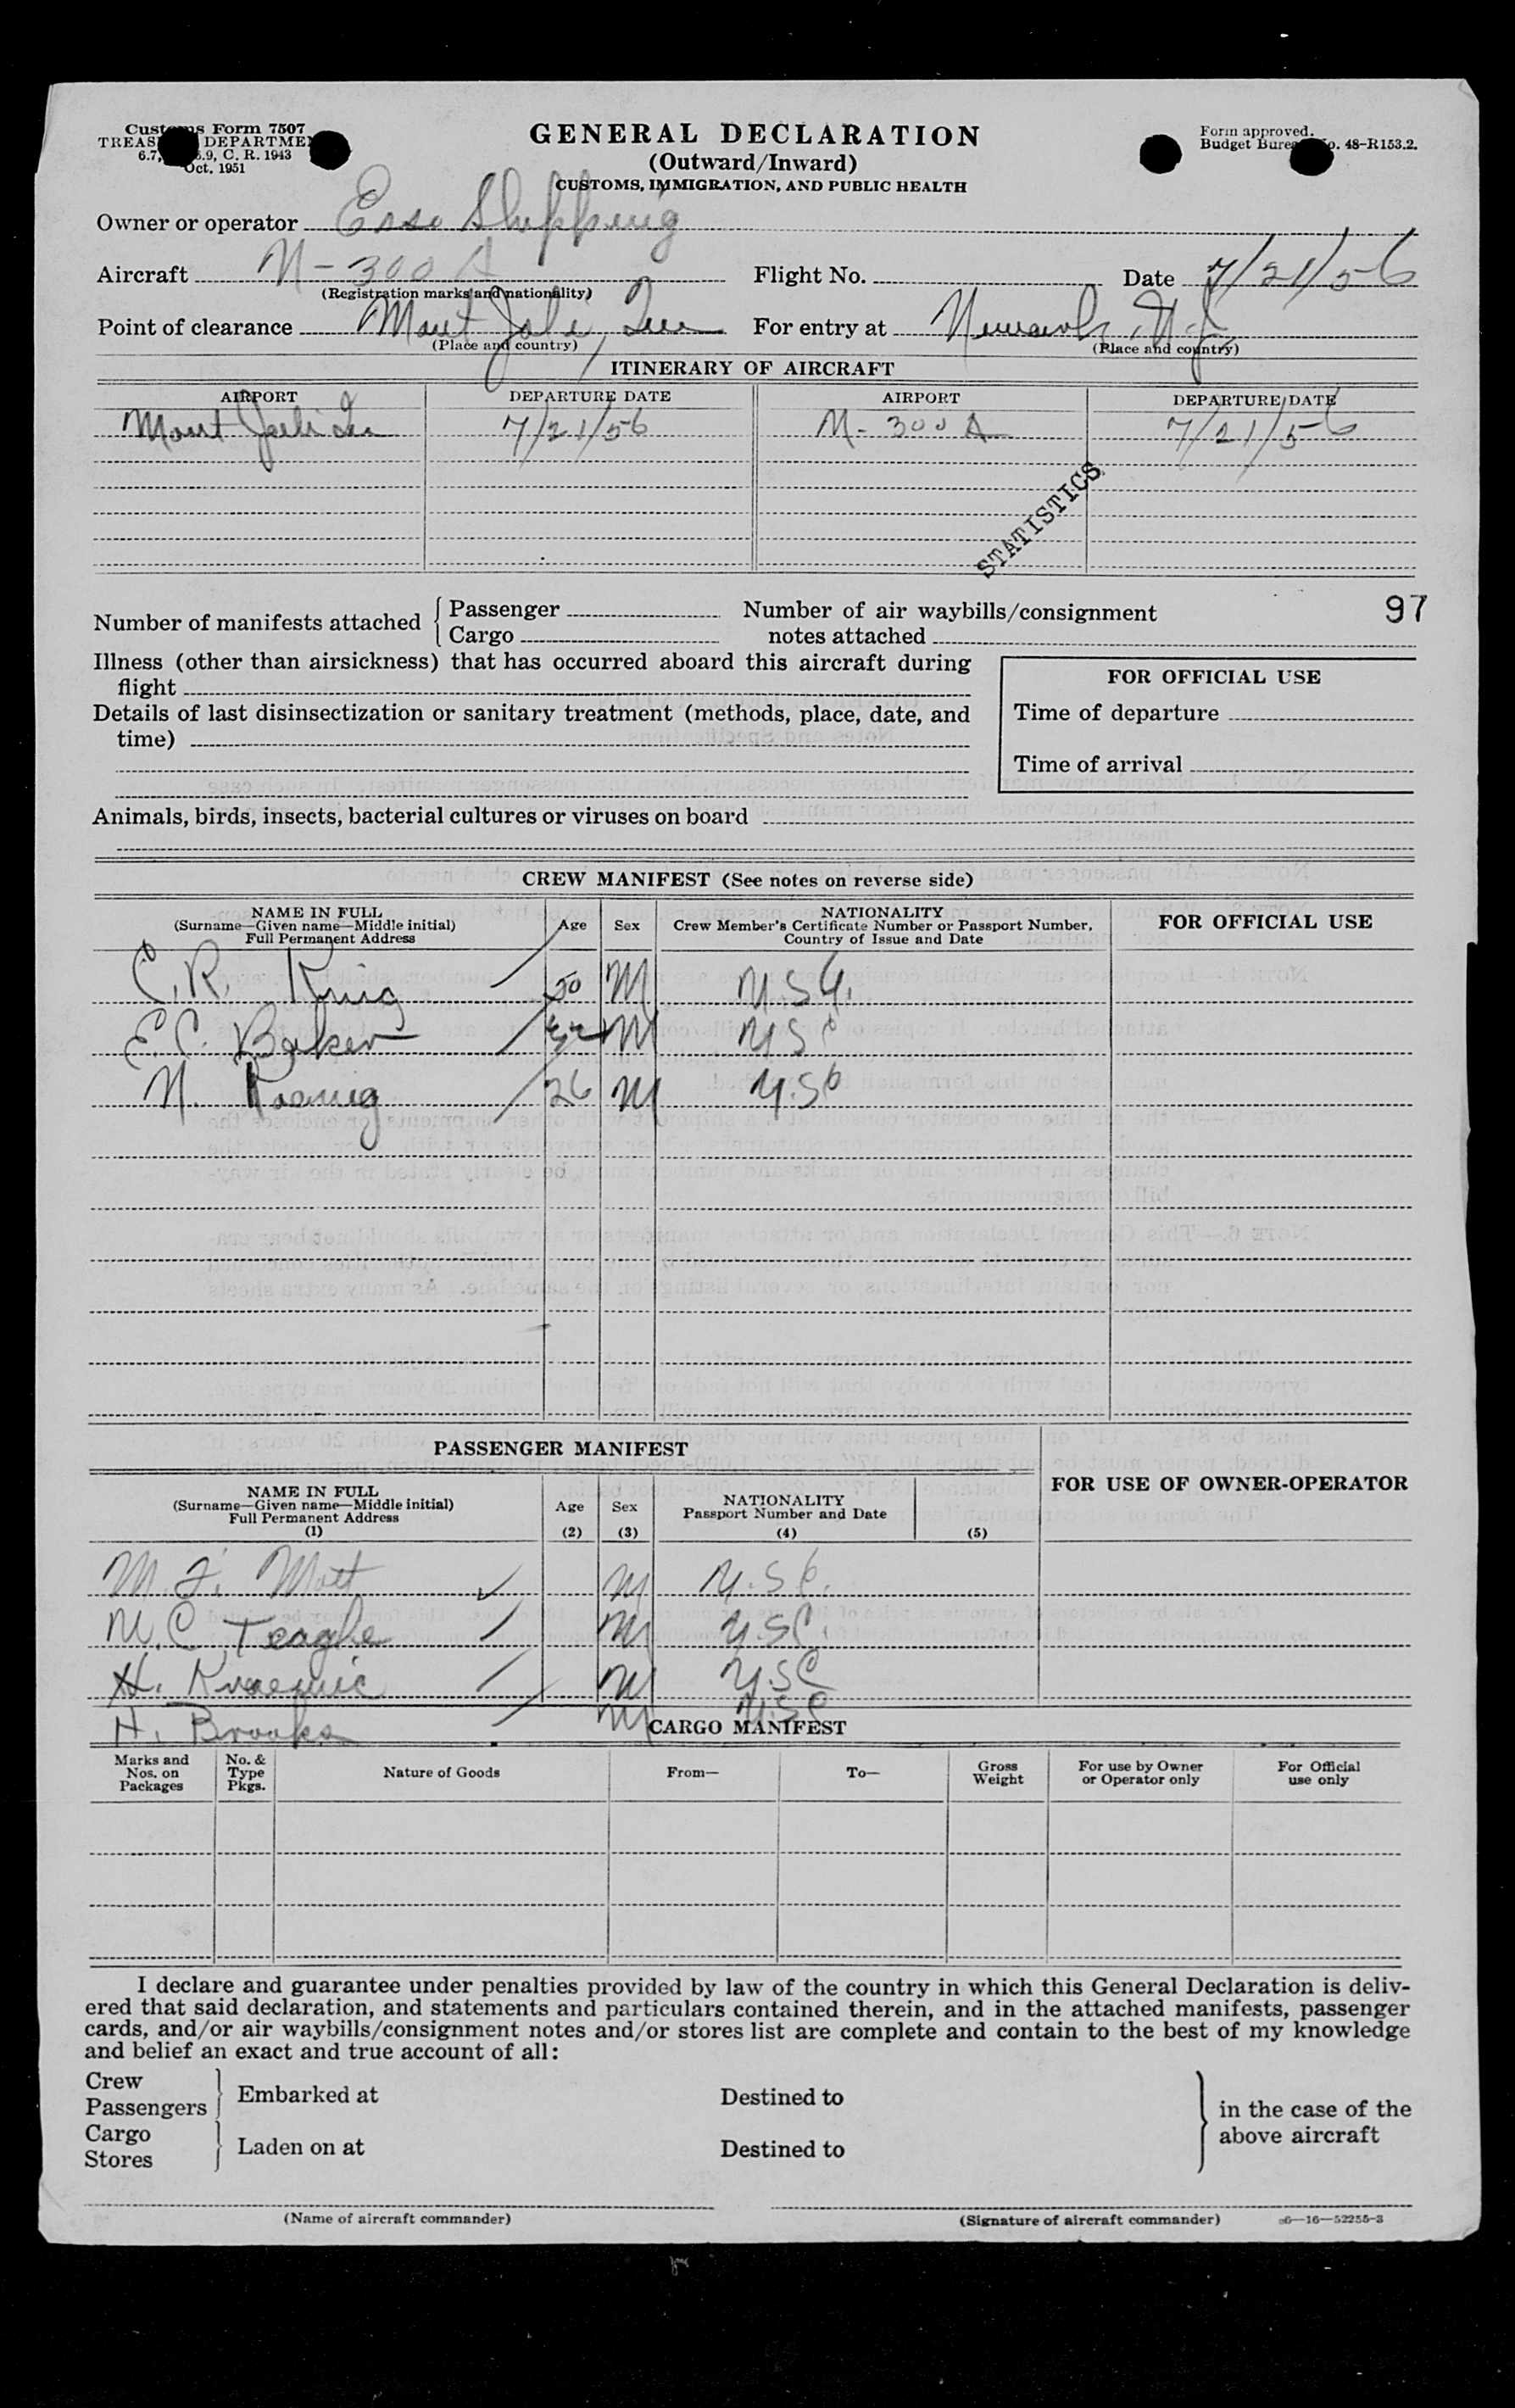 Customs Form 7507
TREASURY DEPARTMENT
6.7, 6.9, C. R. 1943
Oct. 1951
GENERAL DECLARATION
(Outward/Inward)
CUSTOMS, IMMIGRATION, AND PUBLIC HEALTH
Form approved.
Budget Bureau No. 48-R153.2.
Owner or operator Esso Shipping
Aircraft N-300 A Flight No. Date 7/21/56
(Registration marks and nationality)
Point of clearance Mont Joli, Que For entry at Newark, N.J.
(Place and country) (Place and country)
ITINERARY OF AIRCRAFT
AIRPORT DEPARTURE DATE AIRPORT DEPARTURE DATE
Mont Joli Que 7/21/56 N-300 A 7/21/56
STATISTICS
97
Number of manifests attached Passenger Number of air waybills/consignment
Cargo notes attached
Illness (other than airsickness) that has occurred aboard this aircraft during
flight
Details of last disinsectization or sanitary treatment (methods, place, date, and
time)
FOR OFFICIAL USE
Time of departure
Time of arrival
Animals, birds, insects, bacterial cultures or viruses on board
CREW MANIFEST (See notes on reverse side)
NAME IN FULL
(Surname—Given name—Middle initial)
Full Permanent Address
Age Sex
NATIONALITY
Crew Member's Certificate Number or Passport Number,
Country of Issue and Date
FOR OFFICIAL USE
C. R. King 50 M USC.
E. C. Baker M USC
N. Koenig 26 M U.SC
PASSENGER MANIFEST
NAME IN FULL
(Surname—Given name—Middle initial)
Full Permanent Address
(1)
Age
(2)
Sex
(3)
NATIONALITY
Passport Number and Date
(4)
(5)
FOR USE OF OWNER-OPERATOR
M. J. Mott M U.SC.
M. C. Teaghe M U.SC.
H. M U.SC
H. Brooks M U.SC
CARGO MANIFEST
Marks and
Nos. on
Packages
No. &
Type
Pkgs.
Nature of Goods
From—
To—
Gross
Weight
For use by Owner
or Operator only
For Official
use only
I declare and guarantee under penalties provided by law of the country in which this General Declaration is deliv-
ered that said declaration, and statements and particulars contained therein, and in the attached manifests, passenger
cards, and/or air waybills/consignment notes and/or stores list are complete and contain to the best of my knowledge
and belief an exact and true account of all:
Crew
Passengers
Embarked at Destined to
Cargo
Stores
Laden on at Destined to
in the case of the
above aircraft
(Name of aircraft commander) (Signature of aircraft commander) 16—52255-3